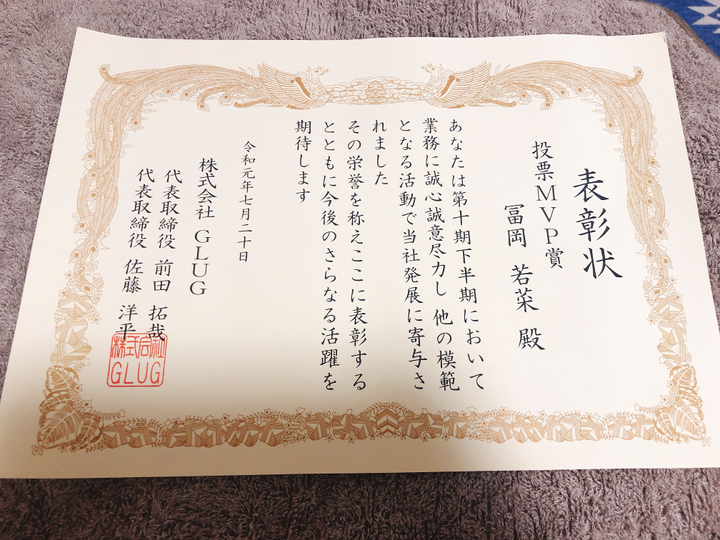 表彰状
投票MVP賞
冨岡 若菜 殿
あなたは第十期下半期において
業務に誠心誠意尽力し 他の模範
となる活動で当社発展に寄与さ
れました
その栄誉を称えここに表彰する
とともに今後のさらなる活躍を
期待します
令和元年七月二十日
株式会社 GLUG
代表取締役 前田 拓哉
代表取締役 佐藤 洋平
株式会社
GLUG